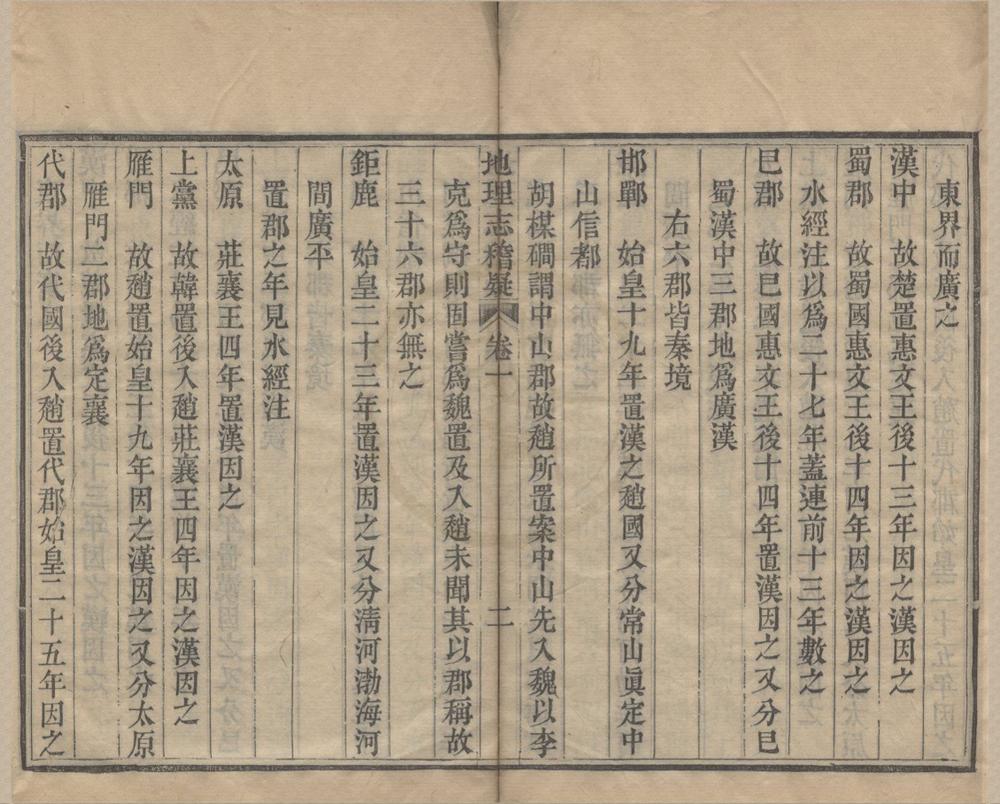 東界而廣之
漢中　故楚置惠文王後十三年因之漢因之
蜀郡　故蜀國惠文王後十四年因之漢因之
水經注以爲二十七年蓋連前十三年數之
巳郡　故巳國惠文王後十四年置漢因之又分巳
蜀漢中三郡地爲廣漢
右六郡皆秦境
邯鄲　始皇十九年置漢之趙國又分常山眞定中
山信都
胡楳磵謂中山郡故趙所置案中山先入魏以李
克爲守則固嘗爲魏置及入趙未聞其以郡稱故
三十六郡亦無之
地理志稽疑　卷一　二
鉅鹿　始皇二十三年置漢因之又分淸河渤海河
間廣平
置郡之年見水經注
太原　莊襄王四年置漢因之
上黨　故韓置後入趙莊襄王四年因之漢因之
雁門　故趙置始皇十九年因之漢因之又分太原
雁門二郡地爲定襄
代郡　故代國後入趙置代郡始皇二十五年因之